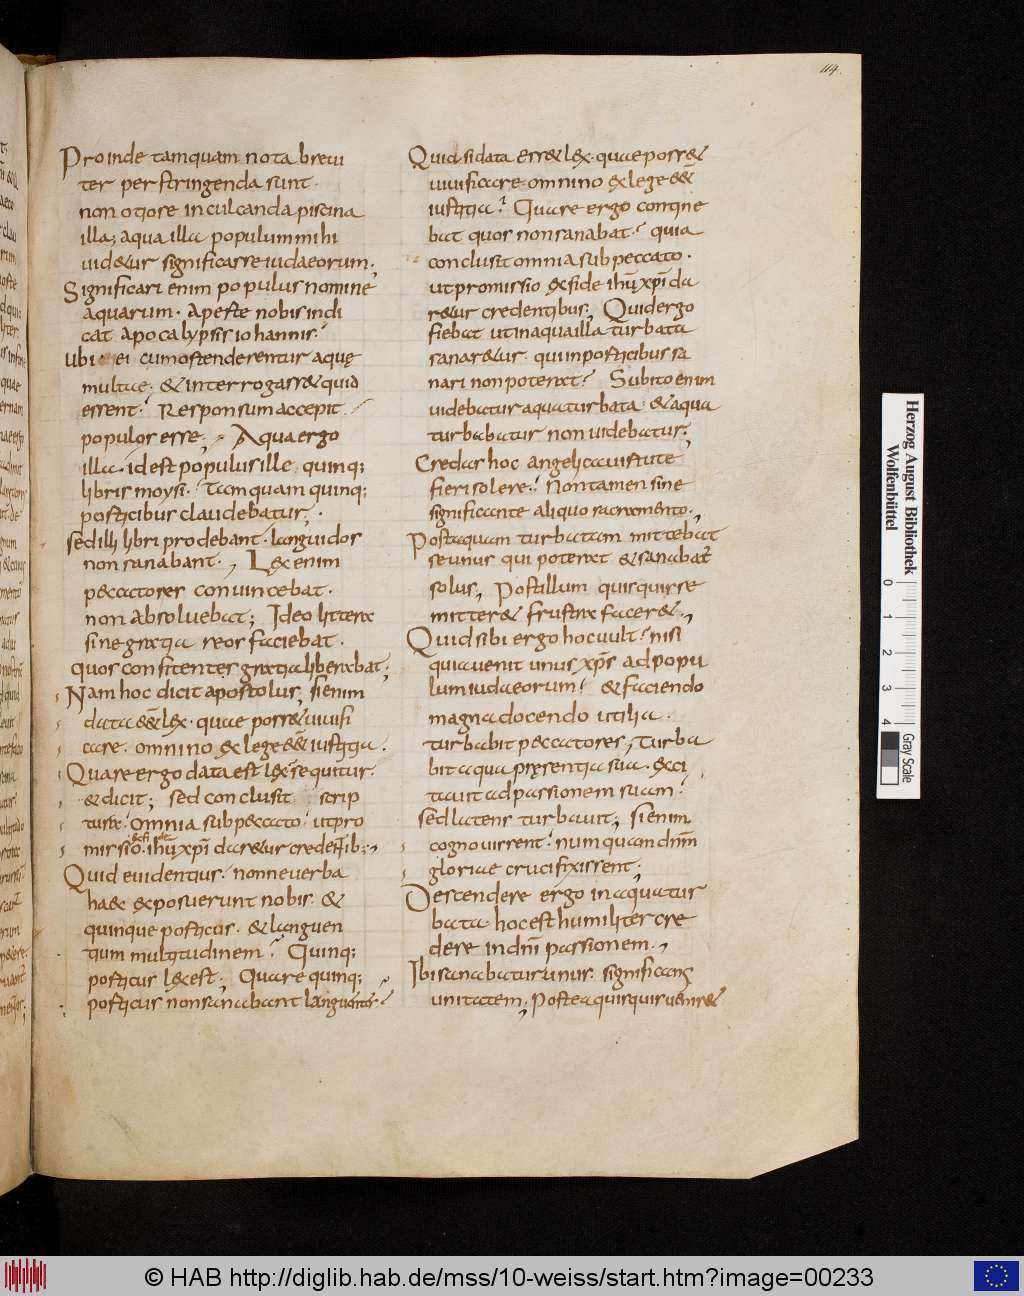 114.
Proinde tamquam nota brevi
ter perstringenda sunt.
non otiose inculcanda piscina
illa; aqua illa populum mihi
uidetur significasse iudaeorum;
Significari enim populus nomine
aquarum. Apeste nobis indi
cat apocalypsis iohannis.
Ubi ei cum ostenderentur aquę
multae. & interrogass& quid
essent? Responsum accepit
populos esse; Aqua ergo
illa. id est populus ille quinq;
libris moysi. Tamquam quinq;
porticibus claudebatur;
sed illi libri prodebant. languidos
non sanabant; Lex enim
peccatores conuincebat.
non absoluebat; Ideo littera
sine gratia reos faciebat.
quos confitentes gratia liberabat;
Nam hoc dicit apostolus, si enim
data e&̄ lex. quae poss& uiuifi
care. omnino ex lege e&̄ iustitia.
Quare ergo data est lex? sequitur
& dicit; sed conclusit scrip
tura. omnia sub peccato. ut pro
missio. ihū xpi dar&ur credentib;
Quid euidentius. nonne uerba
haec exposuerunt nobis. &
quinque porticus. & languen
tium multitudinem? Quinq;
porticus lex est; Quare quinq;
porticus non sanabant languentes?
Quia si data ess& lex. quae poss&
uiuificare omnino ex lege e&̄
iustitia? Quare ergo contine
bat quos non sanabat? quia
conclusit omnia sub peccato.
ut promissio ex fide ihū xpi da
r&ur credentibus; Quid ergo
fiebat ut in aqua illa turbata
sanar&ur. qui in porticibus sa
nari non poterat? Subito enim
uidebatur aqua turbata. & a qua
turbabatur non uidebatur;
Credas hoc angelica uirtute
fieri solere? Non tamen sine
significante aliquo sacramento;
Post aquam turbatam mittebat
se unus qui poterat & sanabat̄
solus; Post illum quisquis se
mitter& frustra facer&;
Quid sibi ergo hoc uult? nisi
quia uenit unus xps̄ ad popu
lum iudaeorum? & faciendo
magna docendo utilia.
turbabit peccatores; turba
bit aqua pręsentia sua. & exci
tauit ad passionem suam?
sed latens turbauit; si enim
cognouissent? numquam dnm̄
gloriae crucifixissent;
Descendere ergo in aqua tur
bata. hoc est humiliter cre
dere in dni̅ passionem;
Ibi sanabatur unus. significans
unitatem; Postea quisquis uenir&
Herzog August Bibliothek
Wolfenbüttel
0 1 2 3 4
Gray Scale
© HAB http://diglib.hab.de/mss/10-weiss/start.htm?image=00233